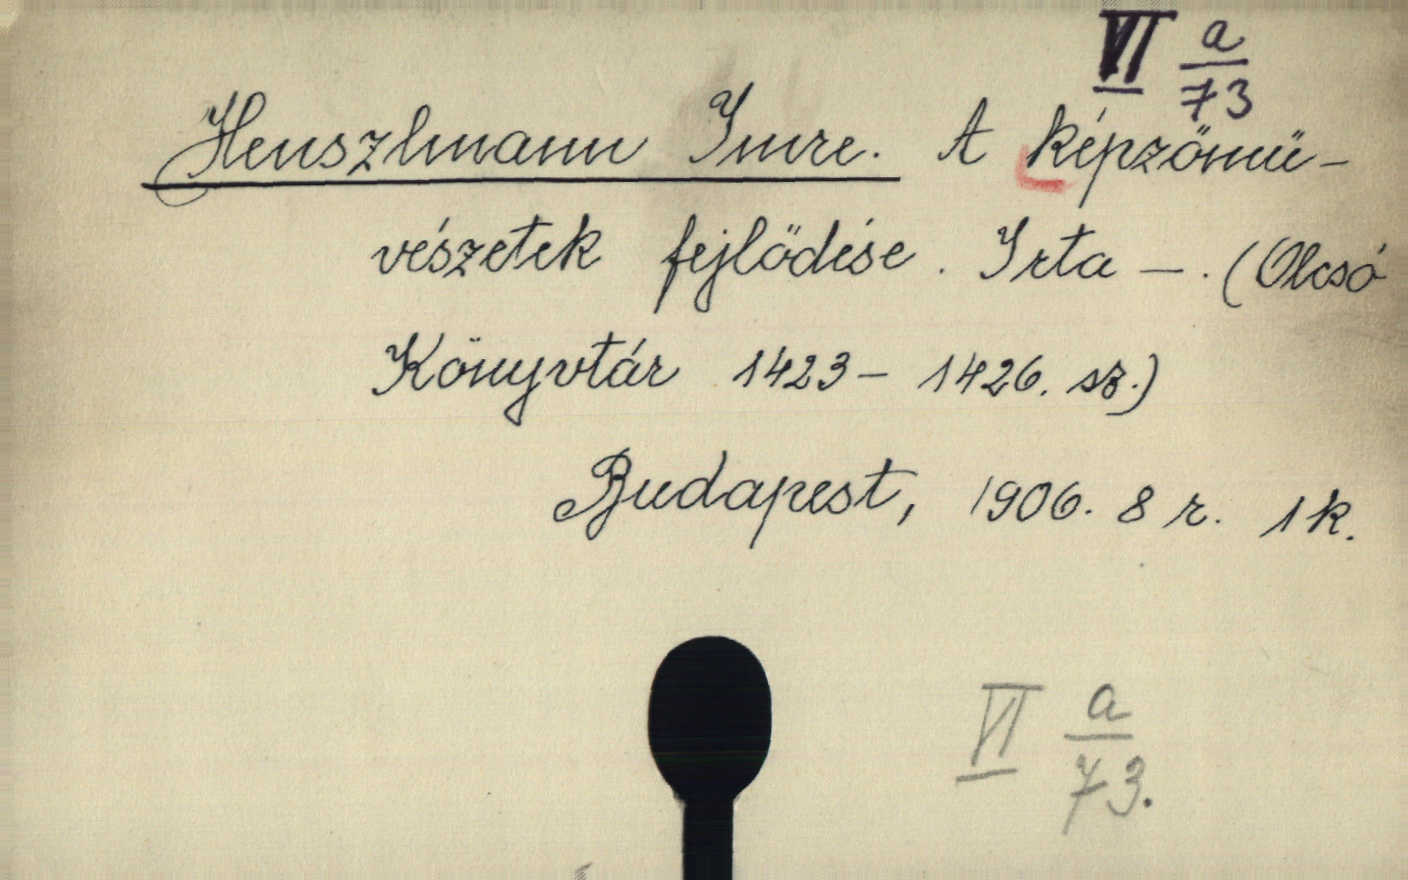 VI a/73
Henszlmann Imre. A képzőmű-
vészetek fejlődése. Irta —. (Olcsó
Könyvtár 1423– 1426. sz.)
Budapest, 1906. 8 r. 1 k.
VI a/73.